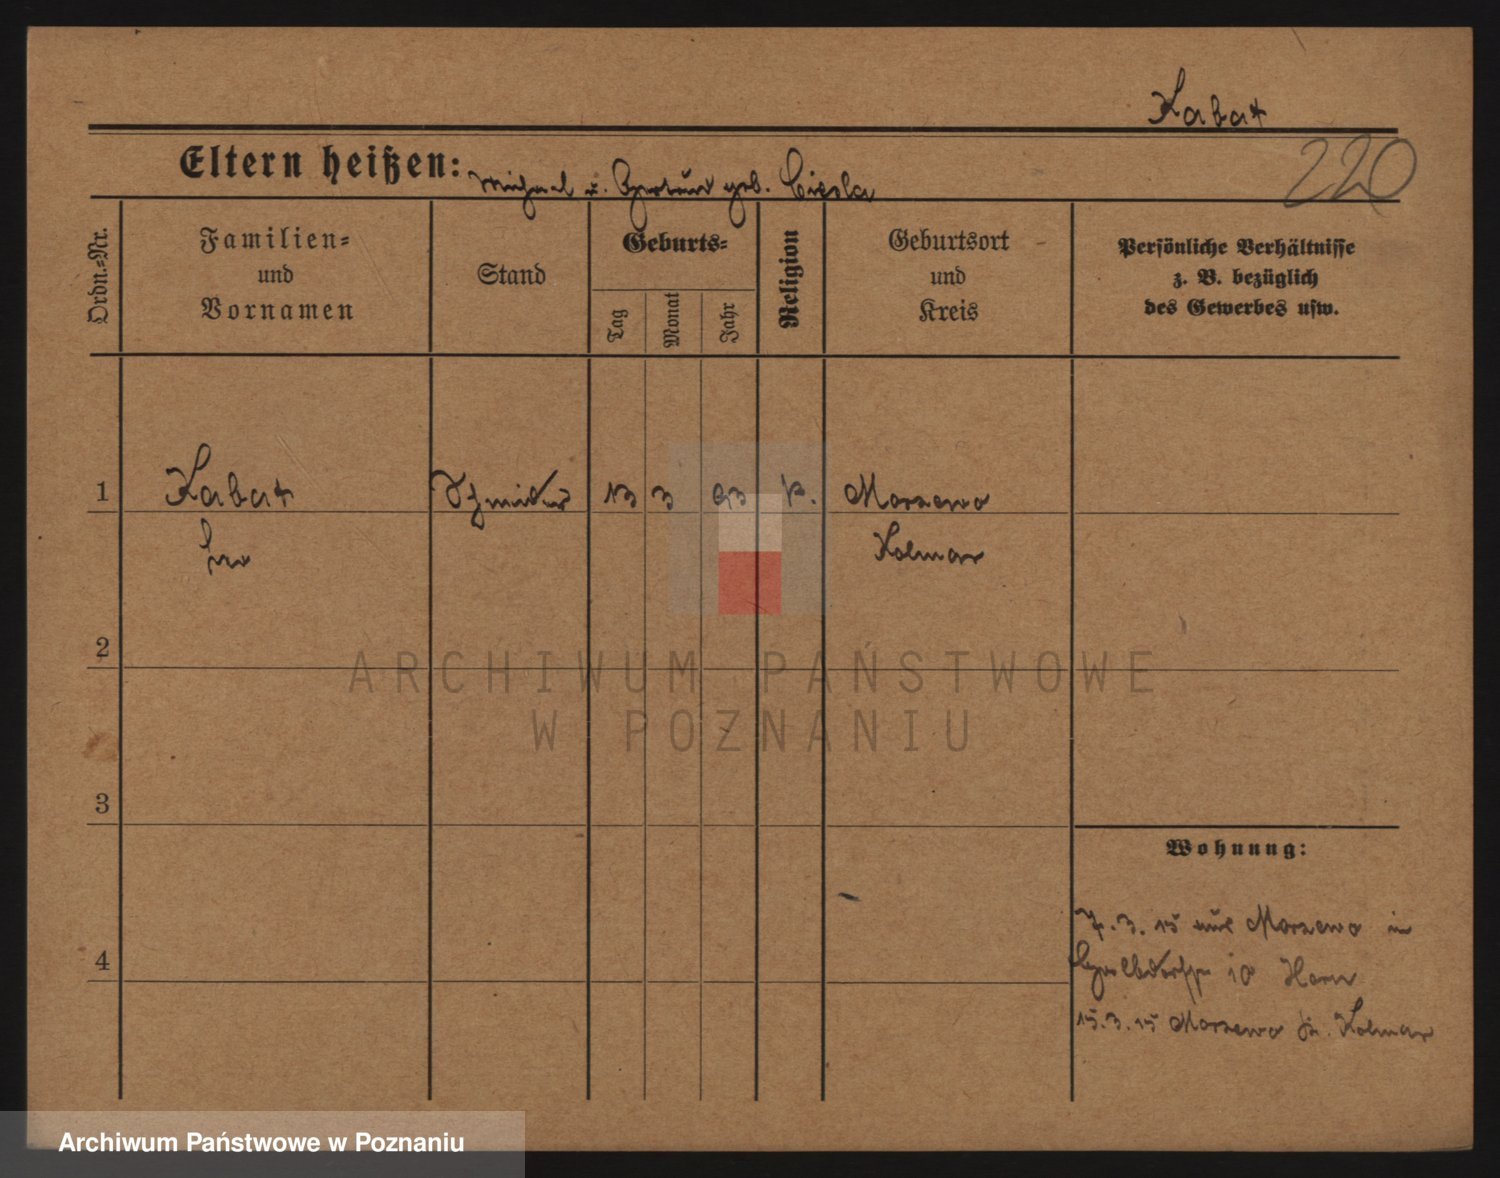 Kabat
220
Eltern heißen: Michael u. Gertrud geb. Ciesla
Ordn.-Nr.
Familien-
und
Vornamen
Stand
Geburts-
Tag
Monat
Jahr
Religion
Geburtsort
und
Kreis
Persönliche Verhältnisse
z. B. bezüglich
des Gewerbes usw.
1 Kabat Schmied 13 3 93 k. Morzewo
Kolmar
2
3
4
Wohnung:
7.3.15 aus Morzewo in
10
15.3.15 Morzewo Kr. Kolmar
ARCHIWUM PAŃSTWOWE
W POZNANIU
Archiwum Państwowe w Poznaniu